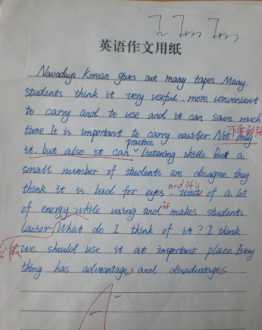 英语作文用纸
Nowadays Korean gives out many tapes. Many
students think it very useful, more convenient
to carry and to use and it can save much
time. It is important to carry easier. Not only
practice
it, but also it can listening while. But a
small number of students are disagree. they
think it is bad for eyes. of a lot
of energy while using and it makes students
lazier. What do I think of it? I think
we should use it at important place. Every
thing has advantages and disadvantages
A-